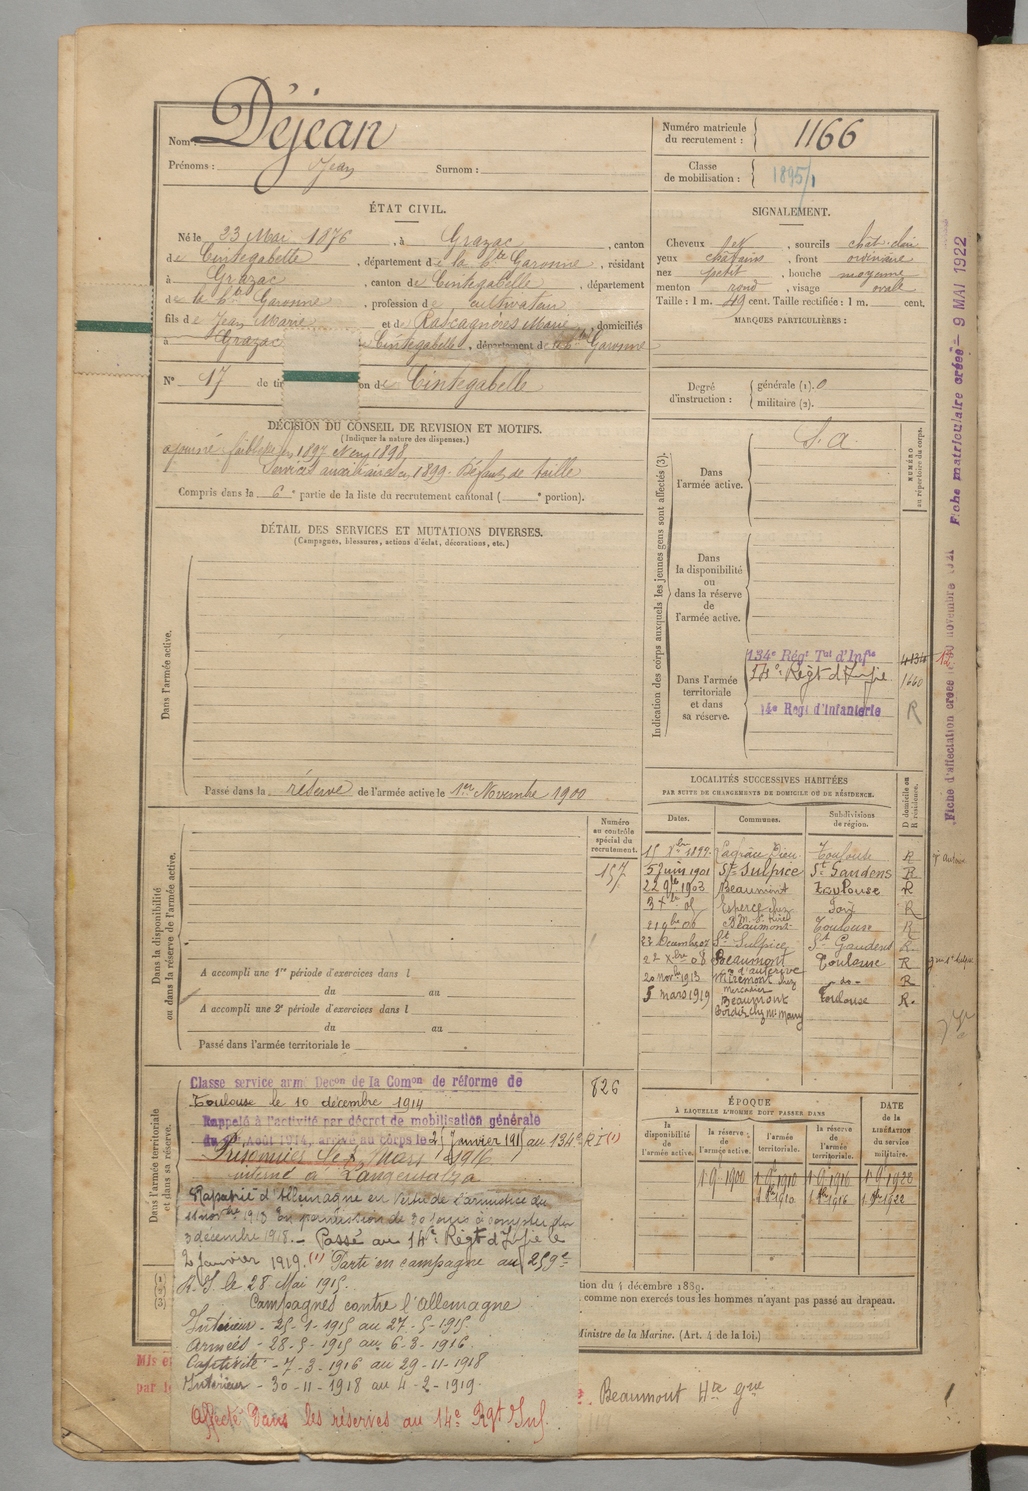 Nom : Déjean
Prénoms : Jean Surnom :
Numéro matricule du recrutement : 1166
Classe de mobilisation : 1895/1
ÉTAT CIVIL.
Né le 23 Mai 1876, à Grazac, canton
de Cintegabelle, département de la Hte Garonne, résidant
à Grazac, canton de Cintegabelle, département
de la Hte Garonne, profession de cultivateur
fils de Jean Marie et de Rascagnères Marie, domiciliés
à Grazac Cintegabelle, département de la Hte Garonne
N° 17 de tir on de Cintegabelle
SIGNALEMENT.
Cheveux et, sourcils chât. clair
yeux châtains, front ordinaire
nez petit, bouche moyenne
menton rond, visage ovale
Taille : 1 m. 49 cent. Taille rectifiée : 1 m. cent.
MARQUES PARTICULIÈRES :
Degré d'instruction : générale (1). 0
militaire (2).
DÉCISION DU CONSEIL DE REVISION ET MOTIFS.
(Indiquer la nature des dispenses.)
ajourné faiblesse en 1897 et en 1898
Services auxiliaires en 1899. Défaut de taille
Compris dans la 6e partie de la liste du recrutement cantonal ( e portion).
DÉTAIL DES SERVICES ET MUTATIONS DIVERSES.
(Campagnes, blessures, actions d'éclat, décorations, etc.)
Dans l'armée active.
Passé dans la réserve de l'armée active le 1er Novembre 1900
Indication des corps auxquels les jeunes gens sont affectés (3).
NUMÉRO au répertoire du corps.
Dans l'armée active.
S. a.
Dans la disponibilité ou dans la réserve de l'armée active.
Dans l'armée territoriale et dans sa réserve.
134e Régt Tal d'Infie
14e Régt d'Infie 1660
14e Régt d'Infanterie R
Numéro au contrôle spécial du recrutement.
157
Dans la disponibilité ou dans la réserve de l'armée active.
A accompli une 1re période d'exercices dans l
du au
A accompli une 2e période d'exercices dans l
du au
Passé dans l'armée territoriale le
LOCALITÉS SUCCESSIVES HABITÉES
PAR SUITE DE CHANGEMENTS DE DOMICILE OU DE RÉSIDENCE.
Dates. Communes. Subdivisions de région. D domicile ou R résidence.
15 1899 Lagrâce Dieu Toulouse R
5 juin 1901 St Sulpice St Gaudens R
22 9bre 1903 Beaumont Toulouse R
Esperce chez Foix R
Beaumont Toulouse R
St Sulpice St Gaudens R
22 Xbre 08 Beaumont Toulouse R
20 novbre 1913 Miremont chez -do- R
5 mars 1919 Beaumont Toulouse R.
Dans l'armée territoriale et dans sa réserve.
826
Classe service armé Décon de la Comon de réforme de
Toulouse le 10 décembre 1914
Rappelé à l'activité par décret de mobilisation générale
Août 1914, arrivé au corps le 25 Janvier 1915 au 134e R I (1)
Prisonnier le 7 Mars 1916
interné à Langensalza
Rapatrié d'Allemagne en vertu de l'armistice du
11 novbre 1918 En permission de 30 jours à compter du
3 décembre 1918. - Passé au 14e Régt d'Infie le
2 janvier 1919. (1) Parti en campagne au 259e
R. I. le 28 Mai 1915.
Campagnes contre l'allemagne
Intérieur - 25-1-1915 au 27-5-1915
Armées - 28-5-1915 au 6-3-1916
Captivité - 7-3-1916 au 29-11-1918
Intérieur - 30-11-1918 au 4-2-1919.
Affecté dans les réserves au 14e Rgt Inf.
ÉPOQUE
À LAQUELLE L'HOMME DOIT PASSER DANS
DATE de la LIBÉRATION du service militaire.
la disponibilité de l'armée active. la réserve de l'armée active. l'armée territoriale. la réserve de l'armée territoriale.
1 9 1900 1 9 1910 1 9 1916 1 9 1922
1 8bre 1910 1 8bre 1916 1 8bre 1922
tion du 4 décembre 1889.
comme non exercés tous les hommes n'ayant pas passé au drapeau.
Ministre de la Marine. (Art. 4 de la loi.)
Beaumont Hte Gne
Mis e
par l
Fiche d'affectation créée novembre
Fiche matriculaire créée - 9 MAI 1922